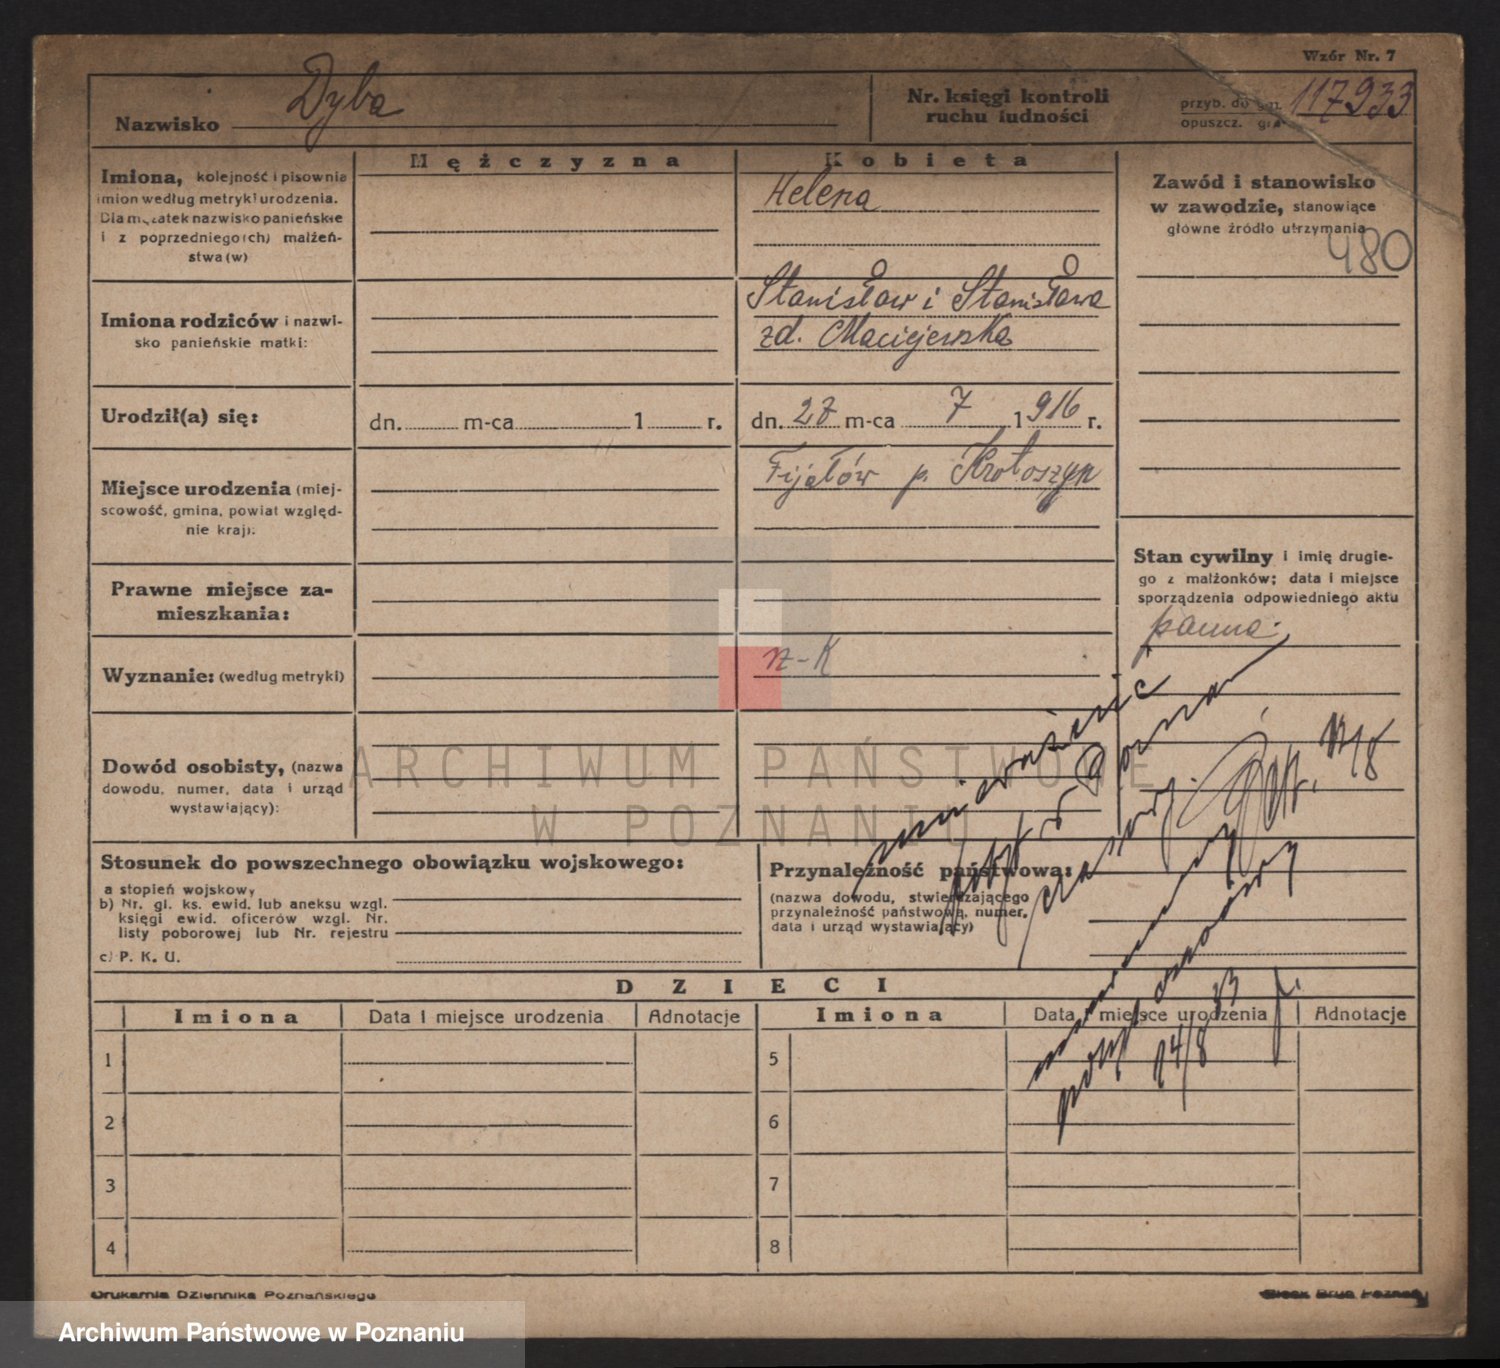 Wzór Nr. 7
Nazwisko Dyba
Nr. księgi kontroli
ruchu ludności
przyb. do gm. 117933
opuszcz. gm.
Mężczyzna
Kobieta
Imiona, kolejność i pisownia
imion według metryki urodzenia.
Dla mężatek nazwisko panieńskie
i z poprzedniego(ch) małżeń-
stwa(w)
Helena
Zawód i stanowisko
w zawodzie, stanowiące
główne źródło utrzymania
480
Imiona rodziców i nazwi-
sko panieńskie matki:
Stanisław i Stanisława
zd. Maciejewska
Urodził(a) się:
dn. m-ca 1 r.
dn. 27 m-ca 7 1916 r.
Miejsce urodzenia (miej-
scowość, gmina, powiat względ-
nie kraj).
Fijałów p. Krotoszyn
Stan cywilny i imię drugie-
go z małżonków; data i miejsce
sporządzenia odpowiedniego aktu
panna
Prawne miejsce za-
mieszkania:
Wyznanie: (według metryki)
rz-K
Dowód osobisty, (nazwa
dowodu, numer, data i urząd
wystawiający):
unieważnić
pobyt w Poznaniu
czasowy.
14/8
ARCHIWUM PAŃSTWOWE
W POZNANIU
Stosunek do powszechnego obowiązku wojskowego:
a stopień wojskowy
b) Nr. gł. ks. ewid. lub aneksu wzgl.
księgi ewid. oficerów wzgl. Nr.
listy poborowej lub Nr. rejestru
c) P. K. U.
Przynależność państwowa:
(nazwa dowodu, stwierdzającego
przynależność państwową, numer,
data i urząd wystawiający)
pobyt czasowy
14/8 33
DZIECI
Imiona Data i miejsce urodzenia Adnotacje Imiona Data i miejsce urodzenia Adnotacje
1 5
2 6
3 7
4 8
Drukarnia Dziennika Poznańskiego
Archiwum Państwowe w Poznaniu